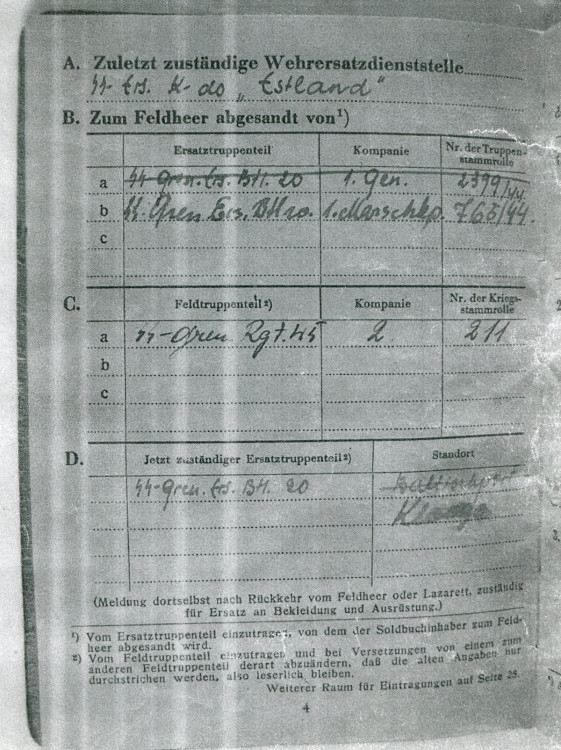 A. Zuletzt zuständige Wehrersatzdienststelle
SS-Ers. K-do „Estland"
B. Zum Feldheer abgesandt von¹)
Ersatztruppenteil Kompanie Nr. der Truppen-
stammrolle
a SS-Gren. Ers. Btl. 20 1. Gen. 2399/44
b SS-Gren Ers. Btl 20. 1. Marschkp. 765/44.
c
C. Feldtruppenteil²) Kompanie Nr. der Kriegs-
stammrolle
a SS-Gren Rgt. 45 2 211
b
c
D. Jetzt zuständiger Ersatztruppenteil²) Standort
SS-Gren. Ers. Btl. 20 Baltischport
Klooga
(Meldung dortselbst nach Rückkehr vom Feldheer oder Lazarett, zuständig
für Ersatz an Bekleidung und Ausrüstung.)
¹) Vom Ersatztruppenteil einzutragen, von dem der Soldbuchinhaber zum Feld-
heer abgesandt wird.
²) Vom Feldtruppenteil einzutragen und bei Versetzungen von einem zum
anderen Feldtruppenteil derart abzuändern, daß die alten Angaben nur
durchstrichen werden, also leserlich bleiben.
Weiterer Raum für Eintragungen auf Seite 25.
4